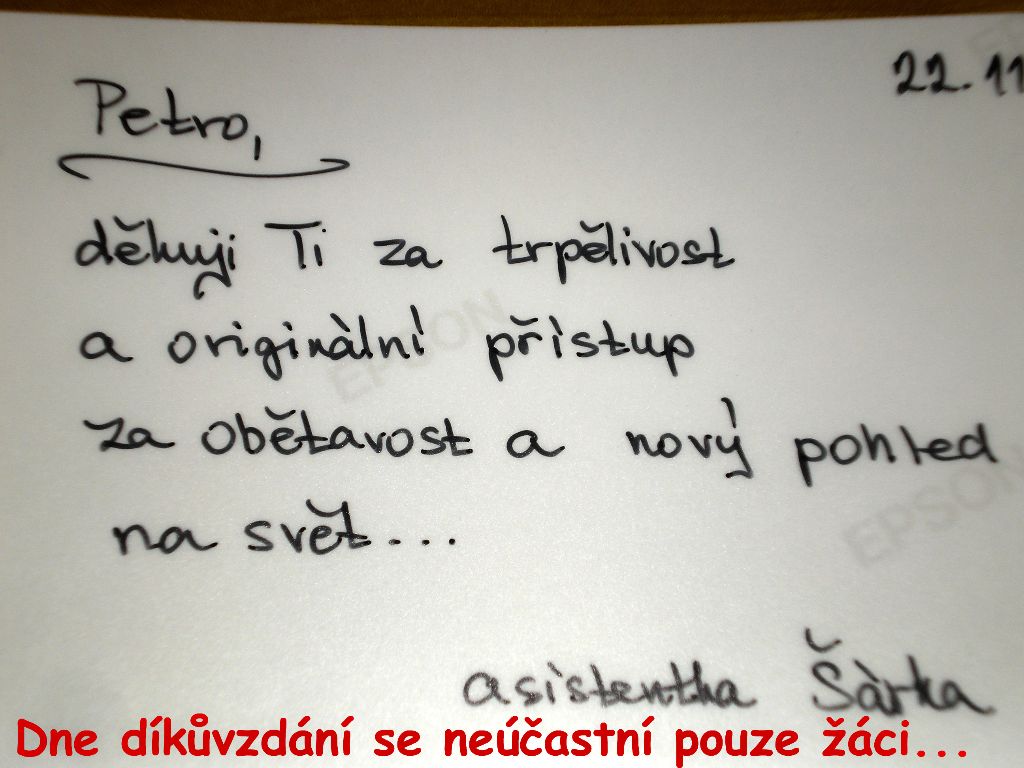 22.11
Petro,
děkuji Ti za trpělivost
a originální přístup
za obětavost a nový pohled
na svět...
asistentka Šárka
Dne díkůvzdání se neúčastní pouze žáci...
EPSON
EPSON